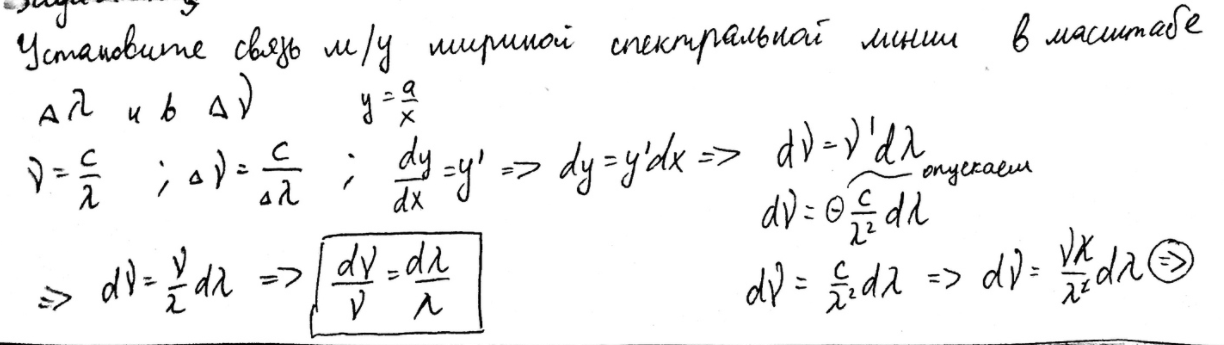 Установите связь м/у шириной спектральной линии в масштабе
Δλ и в Δν y = a/x
ν = c/λ ; Δν = c/Δλ ; dy/dx = y' => dy = y'dx => dν = ν'dλ
опускаем
dν = ⊖ c/λ² dλ
dν = c/λ² dλ => dν = νλ/λ² dλ ⇒
=> dν = ν/λ dλ => dν/ν = dλ/λ